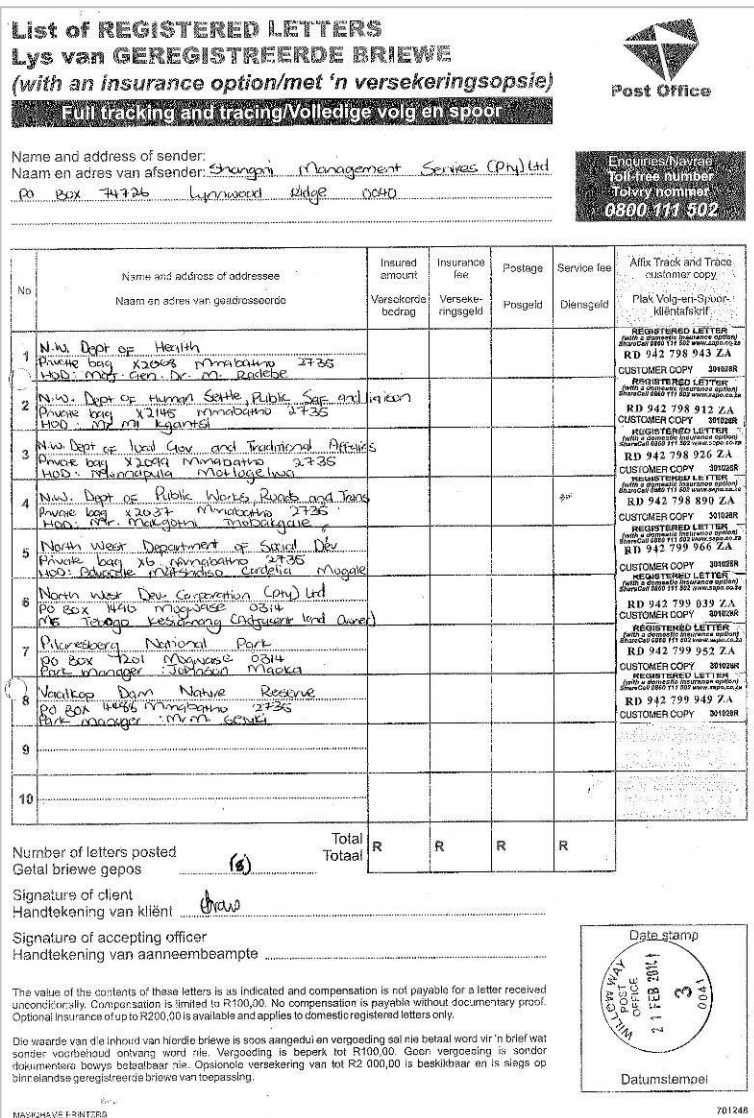 List of REGISTERED LETTERS
Lys van GEREGISTREERDE BRIEWE
(with an insurance option/met 'n versekeringsopsie)
Post Office
Full tracking and tracing/Volledige volg en spoor
Name and address of sender:
Naam en adres van afsender: Shangoni Management Services (Pty) Ltd
PO BOX 74726 Lynnwood Ridge 0040
Enquiries/Navrae
Toll-free number
Tolvry nommer
0800 111 502
No
Name and address of addressee
Naam en adres van geadresseerde
Insured amount
Versekerde bedrag
Insurance fee
Verseke-ringsgeld
Postage
Posgeld
Service fee
Diensgeld
Affix Track and Trace customer copy
Plak Volg-en-Spoor-kliëntafskrif
1
N.W. Dept of Health
Private bag X2068 Mmabatho 2735
HOD: Maj. Gen. Dr. M. Radebe
REGISTERED LETTER
(with a domestic insurance option)
ShareCall 0860 111 502 www.sapo.co.za
RD 942 798 943 ZA
CUSTOMER COPY 301028R
2
N.W. Dept of Human Settle, Public Saf and liaison
Private bag X2145 Mmabatho 2735
HOD: Mr MI Kgantsi
REGISTERED LETTER
(with a domestic insurance option)
ShareCall 0860 111 502 www.sapo.co.za
RD 942 798 912 ZA
CUSTOMER COPY 301028R
3
N.W Dept of local Gov and Traditional Affairs
Private bag X2099 Mmabatho 2735
HOD: Motlogelwa
REGISTERED LETTER
(with a domestic insurance option)
ShareCall 0860 111 502 www.sapo.co.za
RD 942 798 926 ZA
CUSTOMER COPY 301028R
4
N.W. Dept of Public Works, Roads and Trans
Private bag X2037 Mmabatho 2735
HOD: Mr. Makgothi Thobakgale
REGISTERED LETTER
(with a domestic insurance option)
ShareCall 0860 111 502 www.sapo.co.za
RD 942 798 890 ZA
CUSTOMER COPY 301028R
5
North West Department of Social Dev
Private bag X6 Mmabatho 2735
HOD: Advocate Cordelia Mogale
REGISTERED LETTER
(with a domestic insurance option)
ShareCall 0860 111 502 www.sapo.co.za
RD 942 799 966 ZA
CUSTOMER COPY 301028R
6
North West Dev. Corporation (Pty) Ltd
PO BOX Mogwase 0314
Ms Tebogo (Adjacent land Owner)
REGISTERED LETTER
(with a domestic insurance option)
ShareCall 0860 111 502 www.sapo.co.za
RD 942 799 039 ZA
CUSTOMER COPY 301028R
7
Pilanesberg National Park
PO BOX 1201 Mogwase 0314
Park manager : Johnson Maoka
REGISTERED LETTER
(with a domestic insurance option)
ShareCall 0860 111 502 www.sapo.co.za
RD 942 799 952 ZA
CUSTOMER COPY 301028R
8
Vaalkop Dam Nature Reserve
PO BOX 4488 Mmabatho 2735
Park manager : Mr M.
REGISTERED LETTER
(with a domestic insurance option)
ShareCall 0860 111 502 www.sapo.co.za
RD 942 799 949 ZA
CUSTOMER COPY 301028R
9
10
Number of letters posted
Getal briewe gepos (8)
Total
Totaal
R R R R
Signature of client
Handtekening van kliënt
Signature of accepting officer
Handtekening van aanneembeampte
The value of the contents of these letters is as indicated and compensation is not payable for a letter received
unconditionally. Compensation is limited to R100,00. No compensation is payable without documentary proof.
Optional insurance of up to R200,00 is available and applies to domestic registered letters only.
Die waarde van die inhoud van hierdie briewe is soos aangedui en vergoeding sal nie betaal word vir 'n brief wat
sonder voorbehoud ontvang word nie. Vergoeding is beperk tot R100,00. Geen vergoeding is sonder
dokumentere bewys betaalbaar nie. Opsionele versekering van tot R2 000,00 is beskikbaar en is slegs op
binnelandse geregistreerde briewe van toepassing.
Date stamp
WILLOW WAY
POST OFFICE
21 FEB 2014
3
0041
Datumstempel
MASKHAVE PRINTERS
701248